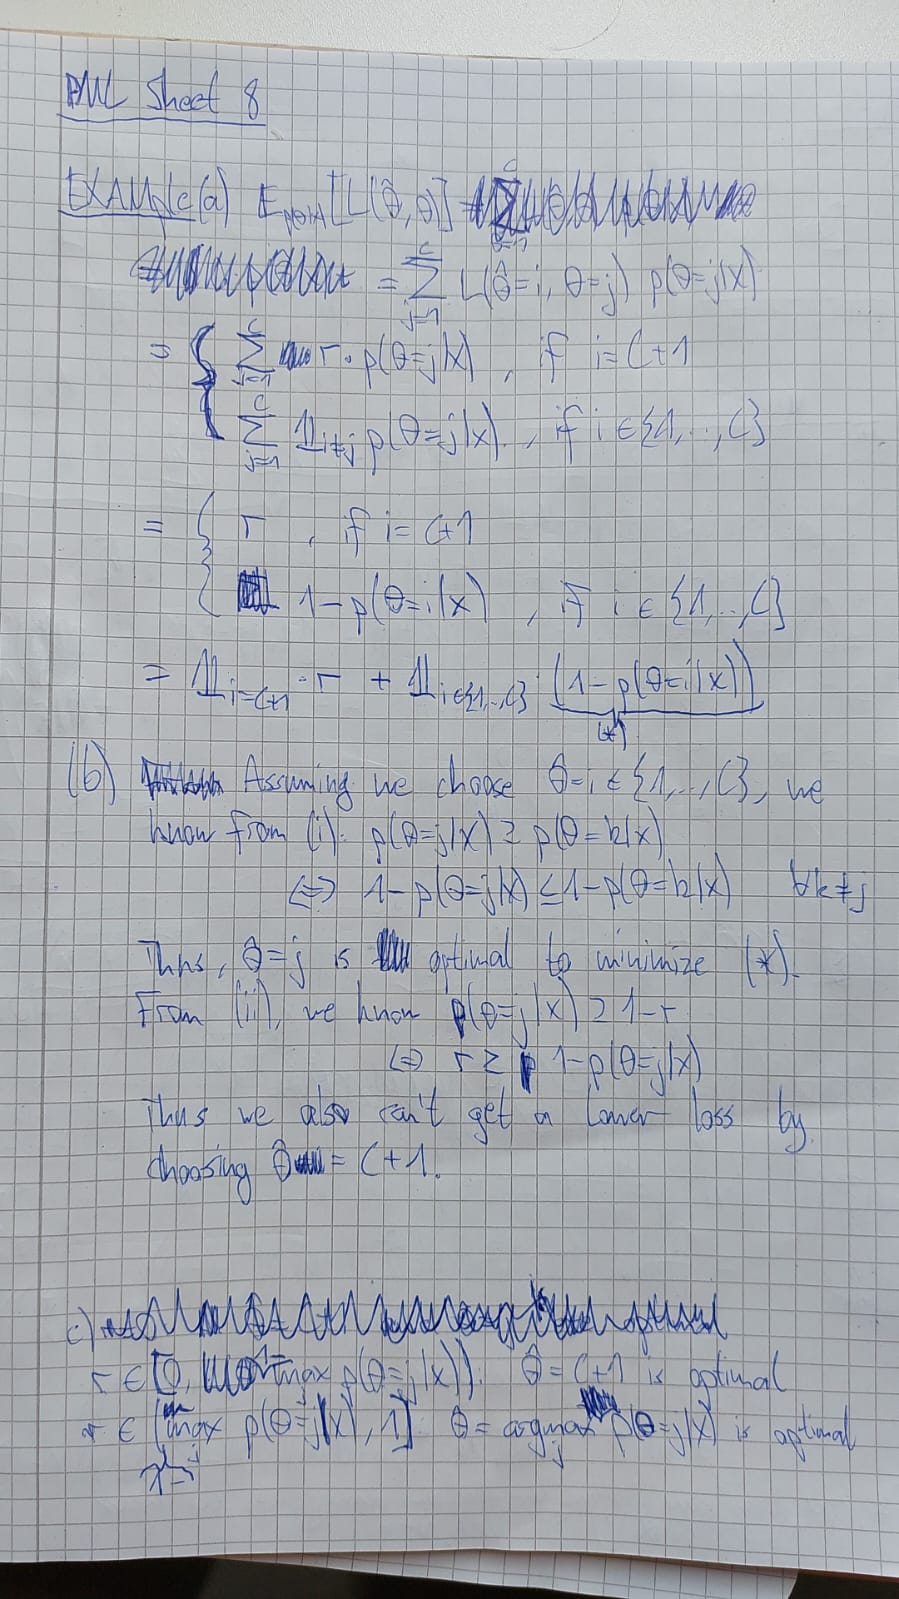 PML Sheet 8
EXAMple (a) E_p(θ|x) [L(θ̂, θ)]
= Σ_{j=1}^{C} L(θ̂=i, θ=j) p(θ=j|x)
= { Σ_{j=1}^{C} r · p(θ=j|x) , if i=C+1
Σ_{j=1}^{C} 𝟙_{i≠j} p(θ=j|x) , if i ∈ {1,..,C}
= { r , if i = C+1
1-p(θ=i|x) , if i ∈ {1,..,C}
= 𝟙_{i=C+1} · r + 𝟙_{i∈{1,..,C}} · (1-p(θ=i|x))
(*)
(b) Assuming we choose θ̂=i ∈ {1,..,C}, we
know from (i): p(θ=j|x) ≥ p(θ=k|x)
⇔ 1-p(θ=j|x) ≤ 1-p(θ=k|x) ∀k≠j
Thus, θ̂=j is optimal to minimize (*).
From (ii), we know p(θ=j|x) ≥ 1-r
⇔ r ≥ 1-p(θ=j|x)
Thus we also can't get a lower loss by
choosing θ̂ = C+1.
c)
r ∈ [0, 1-max p(θ=j|x)): θ̂ = C+1 is optimal
r ∈ (max_j p(θ=j|x), 1] θ̂ = argmax_j p(θ=j|x) is optimal
1-